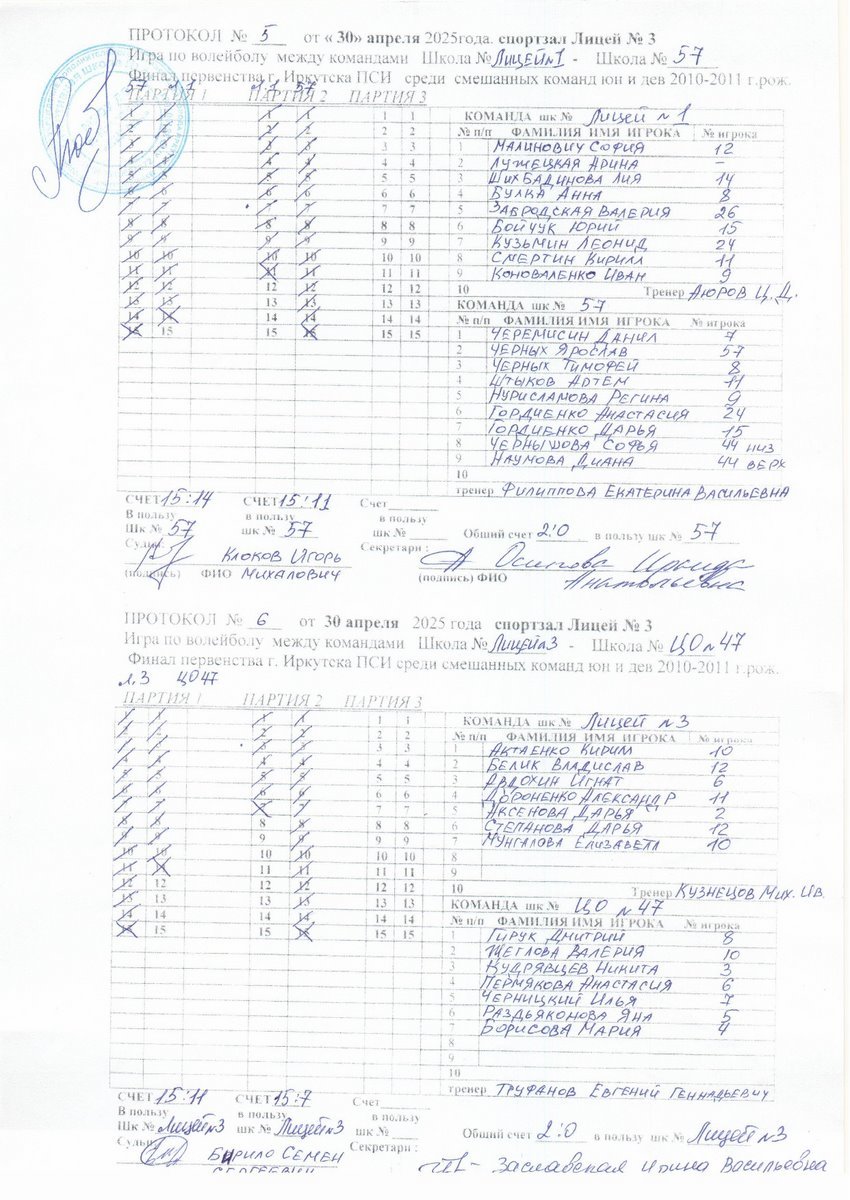 ПРОТОКОЛ № 5 от « 30» апреля 2025года. спортзал Лицей № 3
Игра по волейболу между командами Школа № Лицей №1 - Школа № 57
Финал первенства г. Иркутска ПСИ среди смешанных команд юн и дев 2010-2011 г.рож.
ПАРТИЯ 1 ПАРТИЯ 2 ПАРТИЯ 3
КОМАНДА шк № Лицей №1
№ п/п ФАМИЛИЯ ИМЯ ИГРОКА № игрока
1 МАЛИНОВИЧ СОФИЯ 12
2 ЛУЖЕЦКАЯ АРИНА –
3 ШИХБАДИНОВА ЛИЯ 14
4 БУЛКА АННА 8
5 ЗАБРОДСКАЯ ВАЛЕРИЯ 26
6 БОЙЧУК ЮРИЙ 15
7 КУЗЬМИН ЛЕОНИД 24
8 СМЕРТИН КИРИЛЛ 11
9 КОНОВАЛЕНКО ИВАН 9
10 Тренер АЮРОВ Ц.Д.
КОМАНДА шк № 57
№ п/п ФАМИЛИЯ ИМЯ ИГРОКА № игрока
1 ЧЕРЕМИСИН ДАНИЛ 7
2 ЧЕРНЫХ ЯРОСЛАВ 57
3 ЧЕРНЫХ ТИМОФЕЙ 8
4 ШТЫКОВ АРТЕМ 11
5 НУРИСЛАМОВА РЕГИНА 9
6 ГОРДИЕНКО АНАСТАСИЯ 24
7 ГОРДИЕНКО ДАРЬЯ 15
8 ЧЕРНЫШОВА СОФЬЯ 44 НИЗ
9 НАУМОВА ДИАНА 44 ВЕРХ
10
тренер ФИЛИППОВА ЕКАТЕРИНА ВАСИЛЬЕВНА
СЧЕТ 15:14 СЧЕТ 15:11 Счет
В пользу в пользу в пользу
Шк № 57 шк № 57 шк № Общий счет 2:0 в пользу шк № 57
Судьи КЛОКОВ ИГОРЬ Секретари : Осипова Ираида
(подпись) ФИО МИХАЛОВИЧ (подпись) ФИО Анатольевна
ПРОТОКОЛ № 6 от 30 апреля 2025 года спортзал Лицей № 3
Игра по волейболу между командами Школа № Лицей №3 - Школа № ЦО №47
Финал первенства г. Иркутска ПСИ среди смешанных команд юн и дев 2010-2011 г.рож.
л.3 ЦО47
ПАРТИЯ 1 ПАРТИЯ 2 ПАРТИЯ 3
КОМАНДА шк № Лицей №3
№ п/п ФАМИЛИЯ ИМЯ ИГРОКА № игрока
1 АКТАЕНКО КИРИМ 10
2 БЕЛИК ВЛАДИСЛАВ 12
3 АВДОХИН ИГНАТ 6
4 ДОРОНЕНКО АЛЕКСАНДР 11
5 АКСЕНОВА ДАРЬЯ 2
6 СТЕПАНОВА ДАРЬЯ 12
7 МУНГАЛОВА ЕЛИЗАВЕТА 10
8
9
10 Тренер КУЗНЕЦОВ МИХ. ИВ.
КОМАНДА шк № ЦО №47
№ п/п ФАМИЛИЯ ИМЯ ИГРОКА № игрока
ГИРУК ДМИТРИЙ 8
2 ЩЕГЛОВА ВАЛЕРИЯ 10
3 КУДРЯВЦЕВ НИКИТА 3
4 ПЕРМЯКОВА АНАСТАСИЯ 6
5 ЧЕРНИЦКИЙ ИЛЬЯ 7
6 РАЗДЬЯКОНОВА ЯНА 5
7 БОРИСОВА МАРИЯ 4
8
9
10
тренер ТРУФАНОВ ЕВГЕНИЙ ГЕННАДЬЕВИЧ
СЧЕТ 15:11 СЧЕТ 15:7 Счет
В пользу в пользу в пользу
Шк № Лицей №3 шк № Лицей №3 шк № Общий счет 2:0 в пользу шк № Лицей №3
Судьи БИРИЛО СЕМЕН Секретари :
СЕРГЕЕВИЧ Заславская Ирина Васильевна